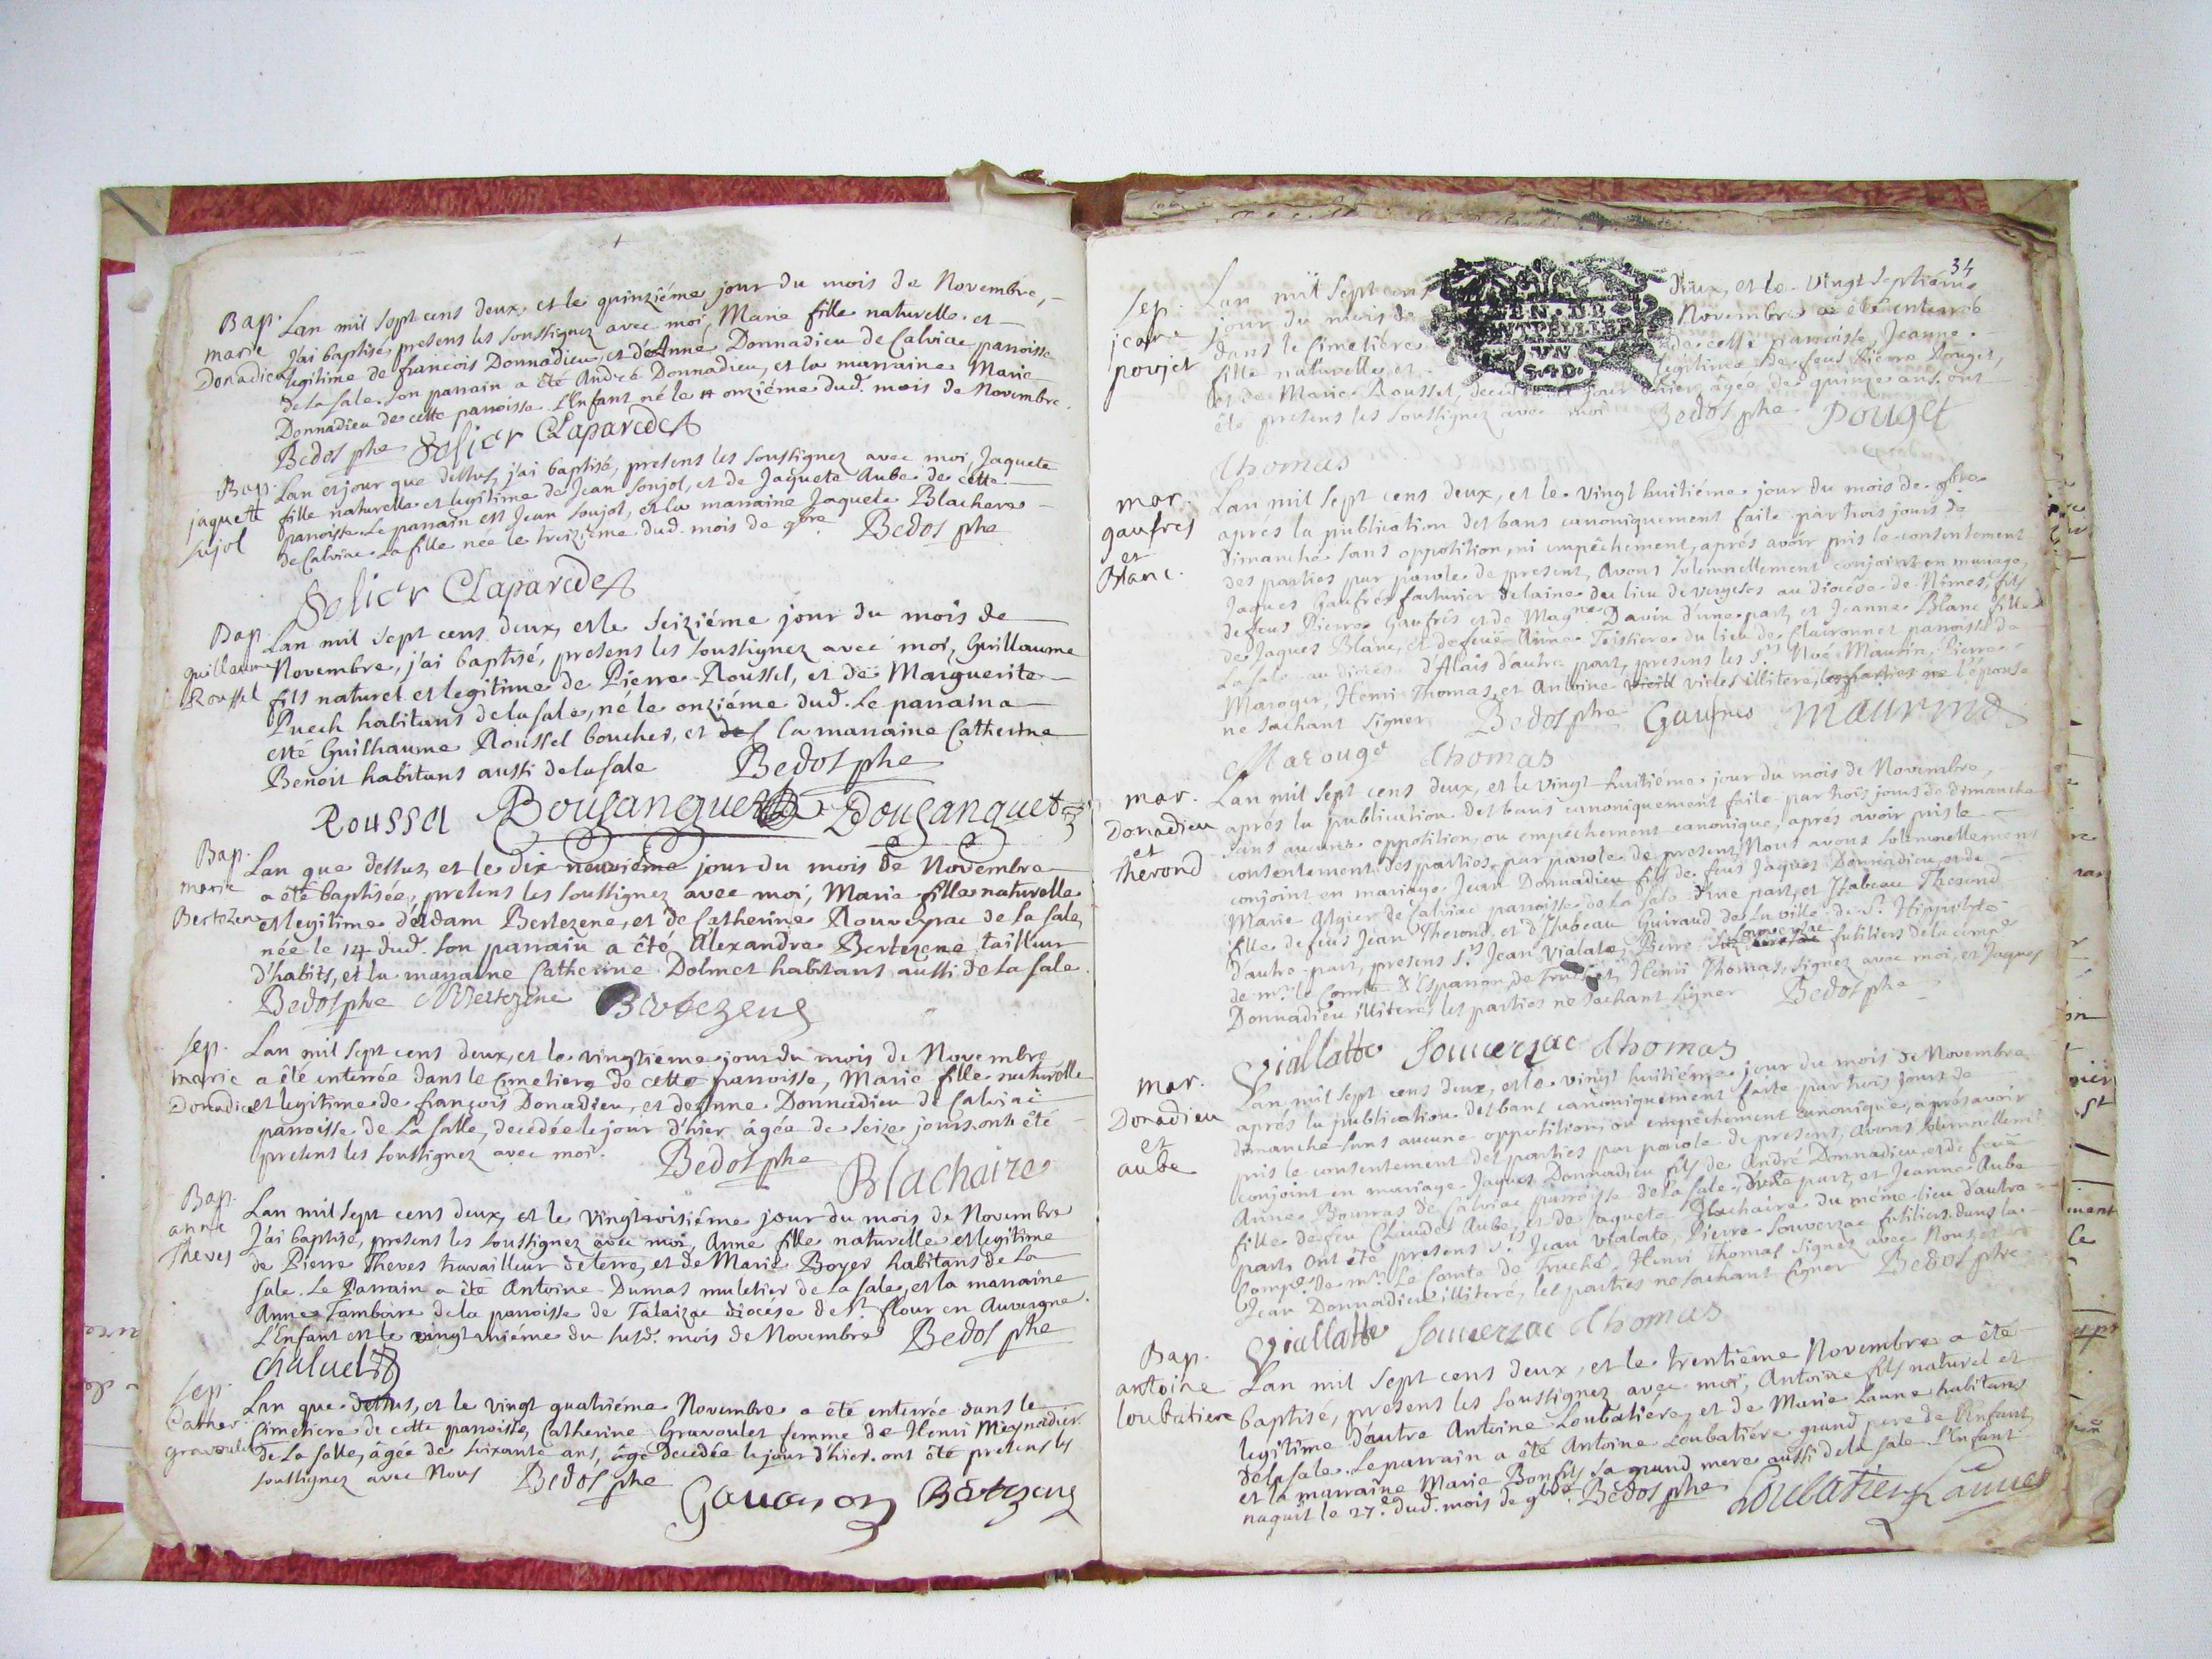 Bap.
marie
Donadieu
Lan mil sept cens deux, et le quinziéme jour du mois de Novembre,
J'ai baptisé, presens les soussignez avec moi, Marie fille naturelle et
legitime de francois Donnadieu, et d'Anne Donnadieu de Calviac parroisse
de la sale. son parrain a été André Donnadieu, et la marraine Marie
Donnadieu de cette parroisse. L'Enfant né le onziéme dud. mois de Novembre.
Bedos phre Solier Claparede
Bap.
jaquette
sujol
Lan et jour que dessus, j'ai baptisé, presens les soussignez avec moi, Jaquete
fille naturelle et legitime de Jean Soujol, et de Jaquete Aube de cette
parroisse. Le parrain est Jean Soujol, et la marraine Jaquete Blachere
de Calviac. La fille née le treiziéme dud. mois de 9bre Bedos phre
Solier Claparede
Bap.
guillaume
Roussel
Lan mil sept cens deux, et le seiziéme jour du mois de
Novembre, j'ai baptisé, presens les soussignez avec moi, Guillaume
fils naturel et legitime de Pierre Roussel, et de Marguerite
Puech habitans de la sale, né le onziéme dud. Le parrain a
esté Guilhaume Roussel boucher, et la marraine Catherine
Benoit habitans aussi de la sale Bedos phre
Roussel Bousanquet Bousanquet
Bap.
marie
Bertezene
Lan que dessus, et le dix neuviéme jour du mois de Novembre
a été baptisée, presens les soussignez avec moi, Marie fille naturelle
et legitime d'Adam Bertezene, et de Catherine Rouveyrac de la sale,
née le 14 dud. son parrain a été Alexandre Bertezene tailleur
d'habits, et la marraine Catherine Dolmet habitans aussi de la sale.
Bedos phre Bertezene Bertezene
sep.
marie
Donadieu
Lan mil sept cens deux, et le vingtiéme jour du mois de Novembre
a été enterrée dans le Cimetiere de cette parroisse, Marie fille naturelle
et legitime de françois Donnadieu, et de Anne Donnadieu de Calviac
parroisse de La salle, decedée le jour d'hier âgée de seize jours. ont été
presens les soussignez avec moi. Bedos phre Blachaire
Bap.
anne
Theves
Lan mil sept cens deux, et le Vingt troisiéme jour du mois de Novembre
J'ai baptisé, presens les soussignez avec moi, Anne fille naturelle et legitime
de Pierre Theves travailleur de terre, et de Marie Boyer habitans de La
sale. Le Parrain a été Antoine Dumas muletier de la sale, et la marraine
Anne Tamboire de la parroisse de Talaizac diocése de St flour en Auvergne.
L'Enfant est le vingt uniéme du susd. mois de Novembre Bedos phre
Chaluel
sep.
Cather
gravoulet
Lan que dessus, et le vingt quatriéme Novembre a été enterrée dans le
Cimetiere de cette parroisse, Catherine Gravoulet femme de Henri Meynadier
de La salle, âgée de soixante ans, decedée le jour d'hier. ont été presens les
soussignez avec Nous Bedos phre
Bertezene
34
sep.
jeane
poujet
Lan mil sept cens deux, et le vingt septiéme
jour du mois de Novembre a été enterrée
dans le Cimetiere de cette parroisse, Jeanne
fille naturelle et legitime de feus Pierre Pouget,
et de Marie Roussel, decedée le jour d'hier âgée de quinze ans. ont
été presens les soussignez avec moi Bedos phre Pouget
Thomas
GEN. DE
MONTPELLIER
VN
S. 4 D.
mar.
gaufres
et
Blanc.
Lan mil sept cens deux, et le vingt huitiéme jour du mois de 9bre
aprés la publication des bans canoniquement faite par trois jours de
dimanche sans opposition, ni empêchement, aprés avoir pris le consentement
des parties par parole de present, Avons solemnellement conjoint en mariage,
Jaques Gaufrés facturier de laine du lieu de vergeses au diocése de Nîmes, fils
de feus Pierre Gaufrés et de Magne Davin d'une part, et Jeanne Blanc fille
de Jaques Blanc, et de feuë Anne Teissiere du lieu de Claironnet parroisse de
La sale au diocése d'Alais d'autre part, presens les Srs Noé Maurin, Pierre
Maroger, Henri Thomas, et Antoine vieles illiteré, l'épouse
ne sachant signer Bedos phre Gaufres Maurin
Marouger Thomas
mar.
Donadieu
et
therond
Lan mil sept cens deux, et le vingt huitiéme jour du mois de Novembre,
aprés la publication des bans canoniquement faite par trois jours de dimanche
sans aucune opposition, ou empêchement canonique, aprés avoir pris le
consentement des parties par parole de present, Nous avons solemnellement
conjoint en mariage Jean Donnadieu fils de feus Jaques Donnadieu, et de
Marie Algier de Calviac parroisse de La sale d'une part, et Isabeau Therond
fille de feus Jean Therond, et d'Isabeau Guiraud de la ville de St. Hippolyte
d'autre part, presens Srs Jean Vialate, Pierre Souverzac fusiliers de la compe
de mr. le Comte d'Esparron de , Henri Thomas, signez avec moi, et Jaques
Donnadieu illiteré, les parties ne sachant signer Bedos phre
Viallatte Souverzac Thomas
mar.
Donadieu
et
aube
Lan mil sept cens deux, et le vingt huitiéme jour du mois de Novembre
aprés la publication des bans canoniquement faite par trois jours de
dimanche sans aucune opposition, ou empêchement canonique, aprés avoir
pris le consentement des parties par parole de present, avons solemnellemt
conjoint en mariage Jaques Donnadieu fils de André Donnadieu, et de feuë
Anne Bourras de Calviac parroisse de la sale, d'une part, et Jeanne Aube
fille de feu Claude Aube, et de Jaquete Blachaire du même lieu d'autre
part. ont été presens Srs Jean vialate, Pierre Souverzac fusiliers dans la
Compe. de mr. Le Comte de Truché, Henri Thomas signez avec Nous, et
Jean Donnadieu illiteré, les parties ne sachant signer Bedos phre
Viallatte Souverzac Thomas
Bap.
antoine
loubatiere
Lan mil sept cens deux, et le trentiéme Novembre a été
baptisé, presens les soussignez avec moi, Antoine fils naturel et
legitime d'autre Antoine Loubatiére, et de Marie Laune habitans
de la sale. Le parrain a été Antoine Loubatiére grand pere de l'Enfant,
et la marraine Marie Bonfils sa grand mere aussi de la sale. L'Enfant
naquit le 27e. dud. mois de 9bre. Bedos phre Loubatiere Laune